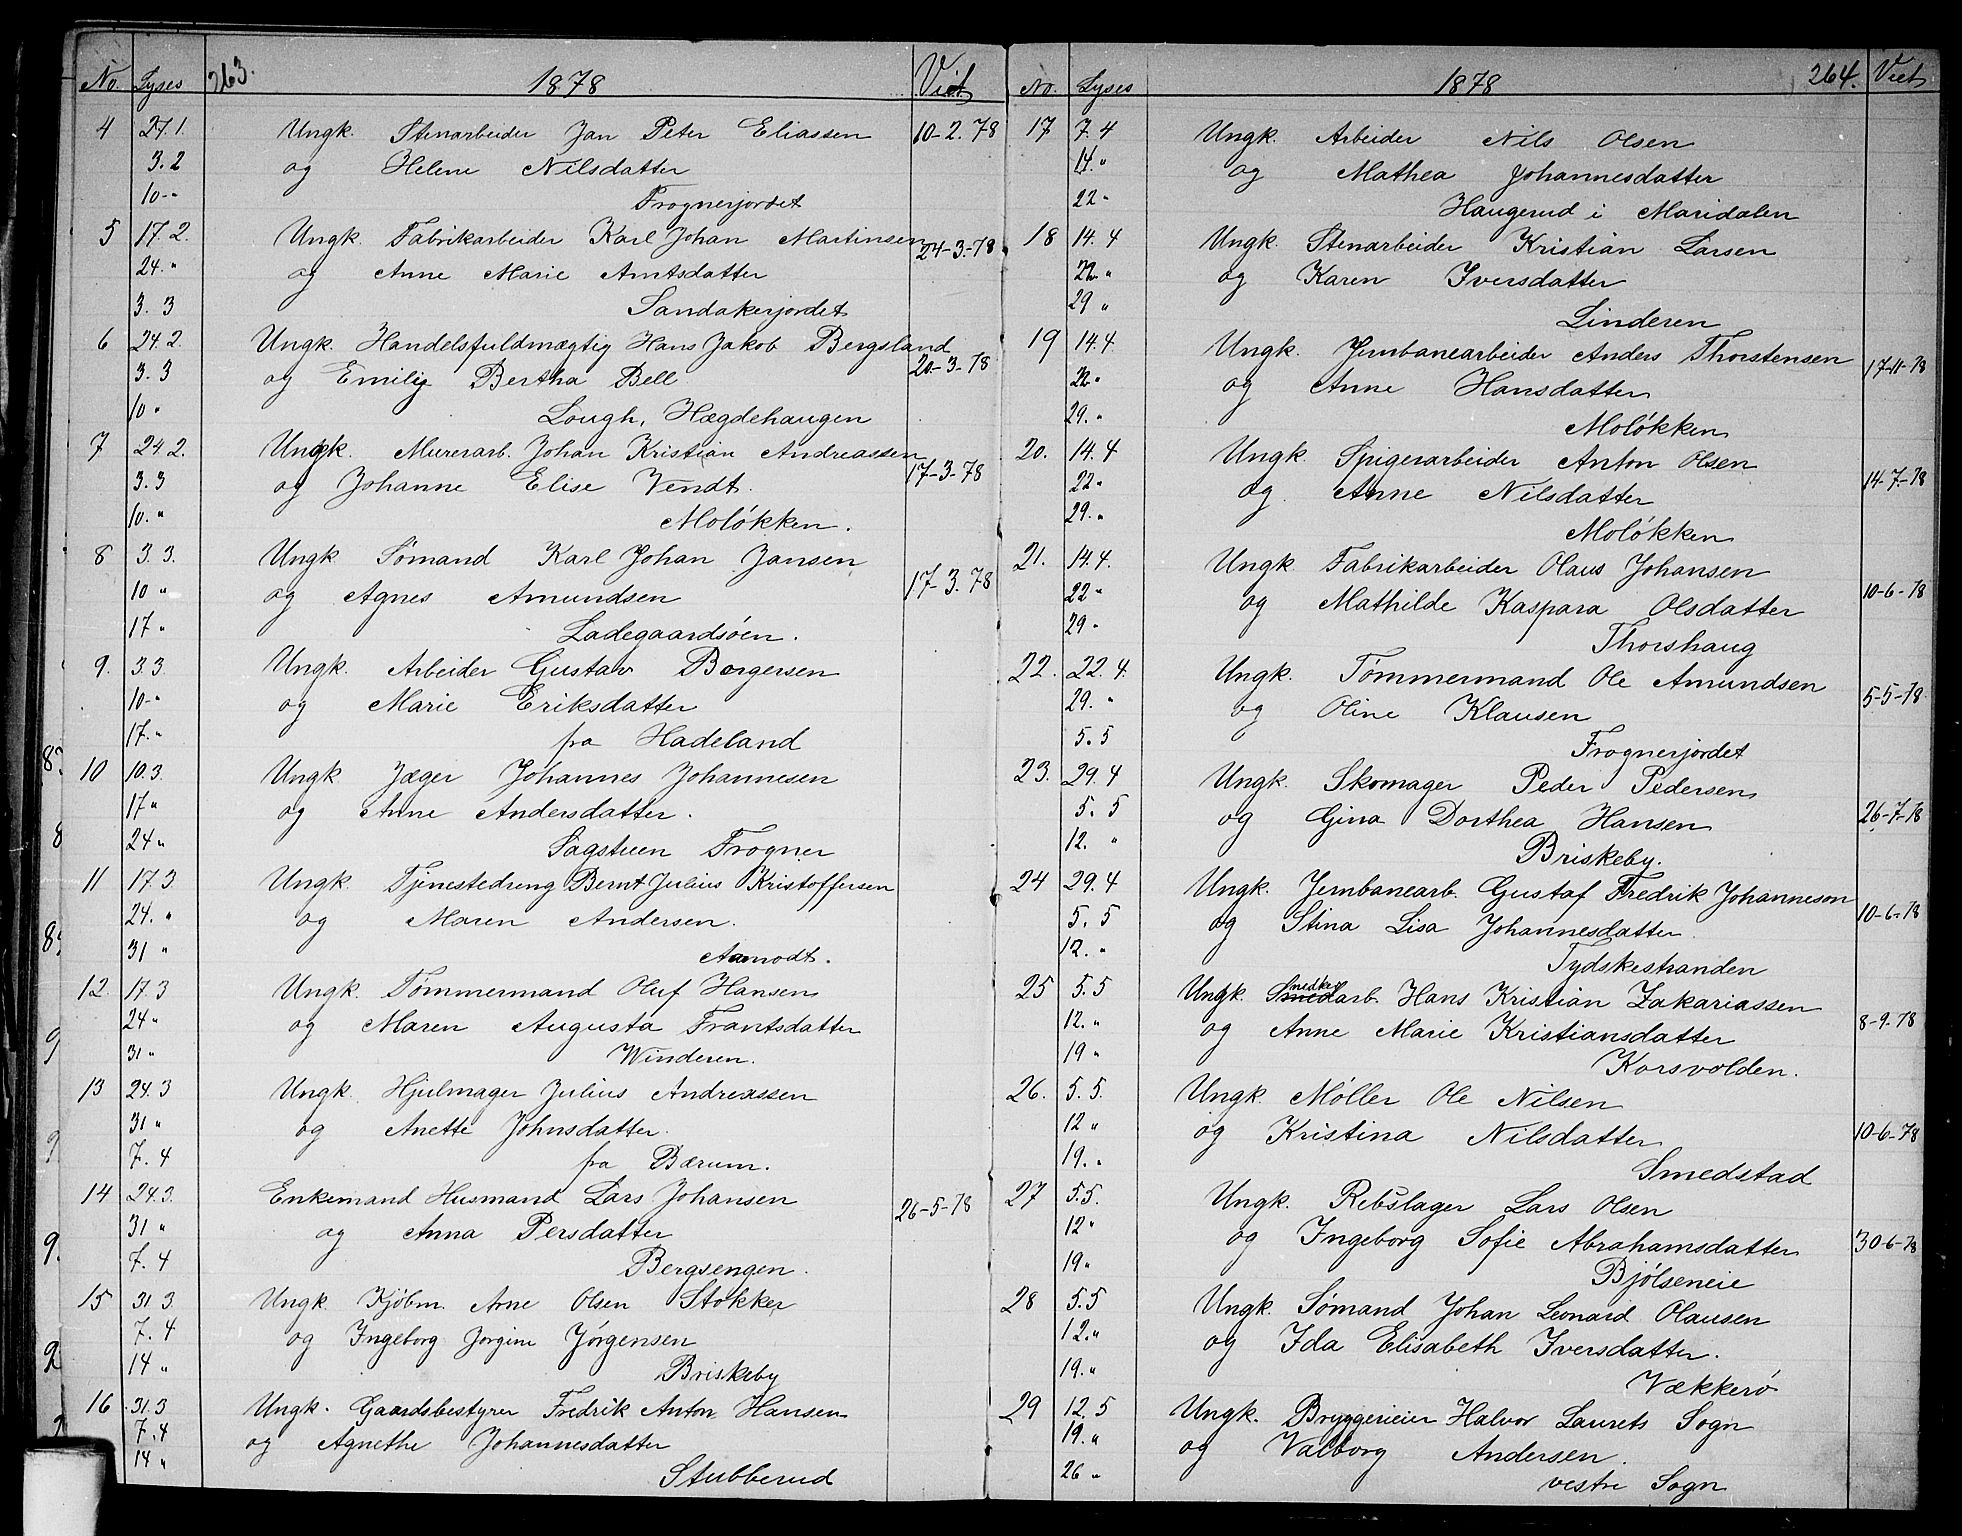 No. Lyses 263. 1878 Viet
4 27.1. Ungk. Stenarbeider Jan Peter Eliassen 10-2.78
3.2 og Helene Nilsdatter
10-" Frognerjordet
5 17.2. Ungk. Fabrikarbeider Karl Johan Martinsen 24-3.-78
24." og Anne Marie Amtsdatter
3.3 Sandakerjordet
6 24.2. Ungk. Handelsfuldmægtig Hans Jakob Bergsland 20-3-78
3.3 og Emilie Bertha Bell
10 " Lough, Hægdehaugen
7 24 2. Ungk. Murerarb. Johan Kristian Andreassen 17-3-78
3.3 og Johanne Elise Vendt.
10. " Moløkken.
8 3.3. Ungk Sømand Karl Johan Jansen 17-3.78
10 " og Agnes Amundsen
17 " Ladegaardsöen.
9. 3.3 Ungk. Arbeider Gustav Borgersen
10-" og Marie Eriksdatter
17." fra Hadeland
10 10.3. Ungk Jæger Johannes Johannesen
17 " og Anne Andersdatter.
24 " Sagstuen Frogner
11 17.3. Ungk. Tjenestedreng Bernt Julius Kristoffersen
24. " og Maren Andersen.
31 " Aamodt.
12. 17.3 Ungk. Tømmermand Oluf Hansen
24 " og Maren Augusta Frantsdatter
31 " Winderen.
13 24.3 Ungk. Hjulmager Julius Andreassen
31 " og Anette Johnsdatter.
7.4 fra Bærum.
14 24.3. Enkemand Husmand Lars Johansen 26-5-78
31 " og Anna Persdatter
7.4 Bergsengen.
15 31.3. Ungk. Kjöbm. Arne Olsen Stokker
7.4 og Ingeborg Jorgine Jørgensen
14 " Briskeby
16 31.3 Ungk. Gaardsbestyrer Fredrik Anton Hansen
7.4 og Agnethe Johannesdatter
14 " Stubberud
No. Lyses 1878 264. Viet
17 7.4 Ungk. Arbeider Nils Olsen
14. " og Mathea Johannesdatter
22 " Haugerud i Maridalen
18 14.4 Ungk Stenarbeider Kristian Larsen
22 " og Karen Iversdatter
29 " Linderen
19 14.4. Ungk. Jernbanearbeider Anders Thorstensen 17-11-78
22 " og Anne Hansdatter
29. " Moløkken
20. 14.4 Ungk. Spigerarbeider Anton Olsen 14-7.-78
22 " og Anne Nilsdatter
29. " Moløkken
21. 14.4. Ungk. Fabrikarbeider Olaus Johansen 10-6-78
22 " og Mathilde Kaspara Olsdatter
29 " Thorshaug
22. 22.4. Ungk. Tømmermand Ole Amundsen 5-5-78
29. " og Oline Klausen
5.5 Frognerjordet
23. 29.4 Ungk. Skomager Peder Pedersen 26-7-78
5.5 og Gina Dorthea Hansen
12. " Briskeby.
24 29.4 Ungk. Jernbanearb. Gustaf Fredrik Johanneson 10-6-78
5.5 og Stina Lisa Johannesdatter
12. " Tydskestranden
25 5.5 Ungk. Snedkerarb. Hans Kristian Zakariassen 8-9.78
12. " og Anne Marie Kristiansdatter
19 " Korsvolden.
26. 5.5. Ungk. Møller Ole Nilsen
12 " og Kristina Nilsdatter 10-6-78
19. " Smedstad
27 5.5. Ungk. Rebslager Lars Olsen
12 " og Ingeborg Sofie Abrahamsdatter 30-6-78
19 " Bjølseneie
28 5.5 Ungk. Sømand Johan Leonard Olausen
12. " og Ida Elisabeth Iversdatter.
19. " Vækkerø
29 12.5 Ungk. Bryggerieier Halvor Laurets Sogn
19. " og Valborg Andersen.
26 " vestre Sogn